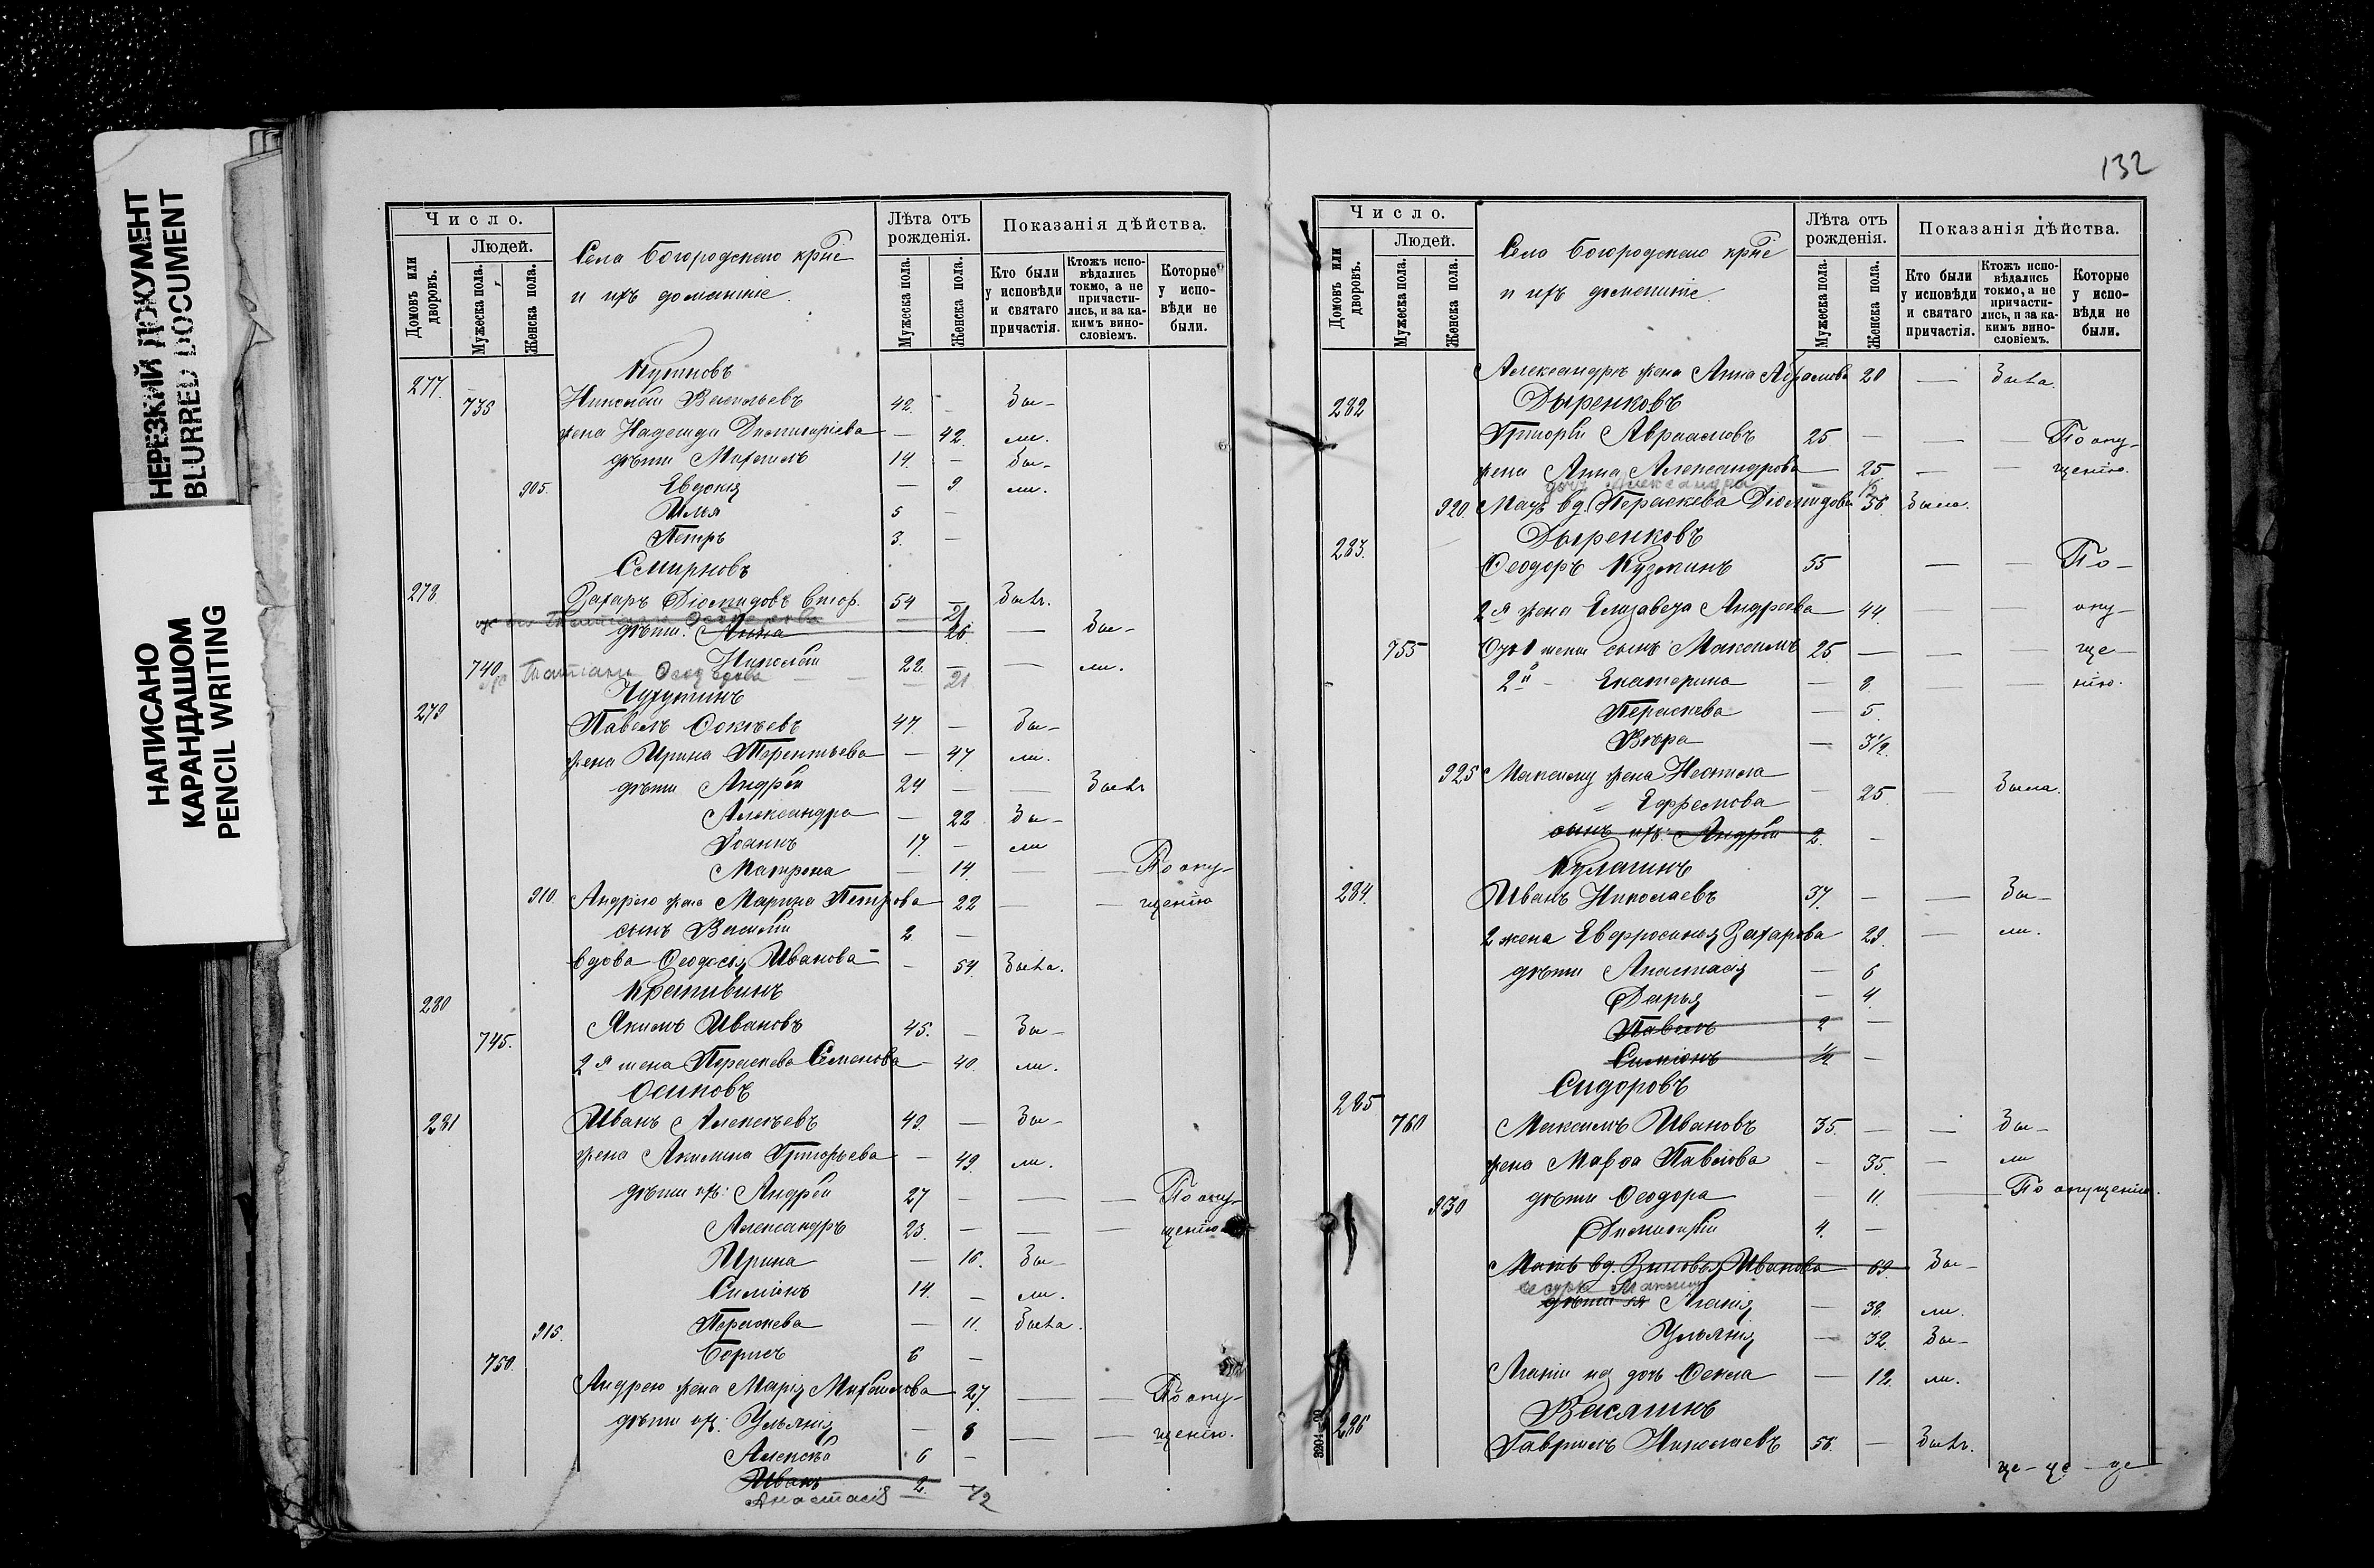 НЕРЕЗКИЙ ДОКУМЕНТ
BLURRED DOCUMENT
НАПИСАНО
КАРАНДАШОМ
PENCIL WRITING
Число.
Людей.
Домовъ или дворовъ.
Мужеска пола.
Женска пола.
Села Богородскаго
и ихъ домашніе.
Лѣта отъ рожденія.
Мужеска пола.
Женска пола.
Показанія дѣйства.
Кто были у исповѣди и святаго причастія.
Ктожъ исповѣдались токмо, а не причастились, и за какимъ винословіемъ.
Которые у исповѣди не были.
277.
738 Николай Васильевъ 42. — Бы-
жена Надежда Димитріева — 42. ли.
дѣти Михаилъ 14. — Бы-
905. Евдокія — 9 ли.
Илья 5 —
Петръ 3. —
Смирновъ
278. Захаръ Діомидовъ 54 — Былъ.
дѣти: Анна — 26 — Бы-
740. Николай 22. — — ли.
Татіана 21
279
Павелъ 47. — Бы-
жена Ирина Терентьева — 47. ли.
дѣти Андрей 24 — — Былъ
Александра — 22 Бы-
Іоаннъ 17. — ли
Матрона — 14. — — По опу-
910. Андрею жена Марина Петрова 22 — — щенію
сынъ Василій 2 —
вдова Ѳеодосія Иванова — 54. Была.
Крапивинъ
280
745. Якимъ Ивановъ 45. — Бы-
2я жена Параскева Семенова — 40. ли.
Осиповъ
281 Иванъ Алексѣевъ 49. — Бы-
жена Акилина Григорьева — 49. ли.
дѣти ихъ: Андрей 27 — — — По опу-
Александръ 23. — — — щенію
Ирина — 16. Бы-
Симіонъ 14. — ли.
915. Параскева — 11. Была.
750. Борисъ 6 —
Андрею жена Марія Михайлова 27. — — По опу-
дѣти ихъ: Ульянія — 8 — — щенію.
Алексѣй 6 —
Иванъ 2.
Анастасія — 1/2
132
Число.
Людей.
Домовъ или дворовъ.
Мужеска пола.
Женска пола.
Село Богородскаго
и ихъ домашніе.
Лѣта отъ рожденія.
Мужеска пола.
Женска пола.
Показанія дѣйства.
Кто были у исповѣди и святаго причастія.
Ктожъ исповѣдались токмо, а не причастились, и за какимъ винословіемъ.
Которые у исповѣди не были.
Александръ жена Анна 20 — Была.
282 Дыренковъ
Григорій Авраамовъ 25. — — По опу-
жена Анна Александрова — 25 — — щенію.
дочь Александра — 1/2
920. Мать вд. Параскева Діомидова 56. Была.
283. Дыренковъ
Ѳеодоръ Кузминъ 55 — — По-
2я жена Елизавета Андреева — 44. — — опу-
755 сынъ Максимъ 25. — — — ще-
2й — Екатерина — 8 — — нію.
Параскева — 5.
Вѣра — 3½
925 Максиму жена
Ефремова — 25. — Была.
сынъ ихъ: Андрей 2. —
Кулагинъ
284. Иванъ Николаевъ 37. — — Бы-
2 жена Евфросинія Захарова 29. — ли.
дѣти Анастасія — 6
Дарья — 4.
Павелъ 2 —
Симіонъ ½ —
Сидоровъ
285
760 Максимъ Ивановъ 35. — — Бы-
жена Марѳа Павлова — 35. — ли
930 дѣти Ѳеодора — 11. — По опущенію.
Димитрій 4. —
Мать вд. Зиновья Иванова 69. Бы-
дѣти ея Агапія — 38. ли.
Ульянія — 32. Бы-
дочь Ѳекла — 12. ли.
286
Гавріилъ Николаевъ 58. — Былъ.
3204—90